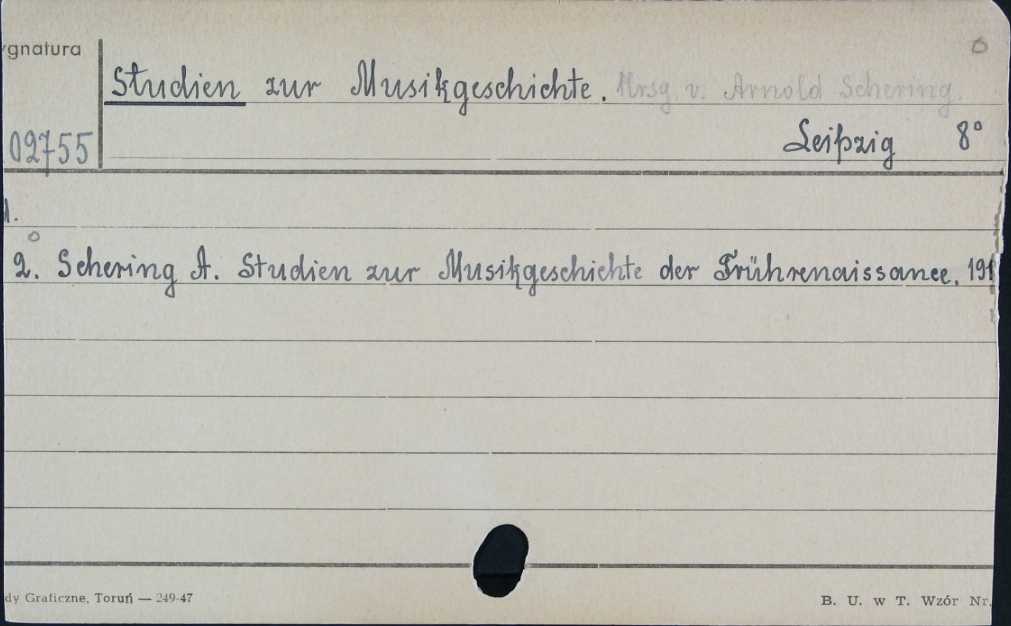 ygnatura
Studien zur Musikgeschichte. Hrsg. v. Arnold Schering.
02755
Leipzig 8°
1.
2. Schering A. Studien zur Musikgeschichte der Frührenaissance. 191
dy Graficzne, Toruń — 249-47
B. U. w T. Wzór Nr.